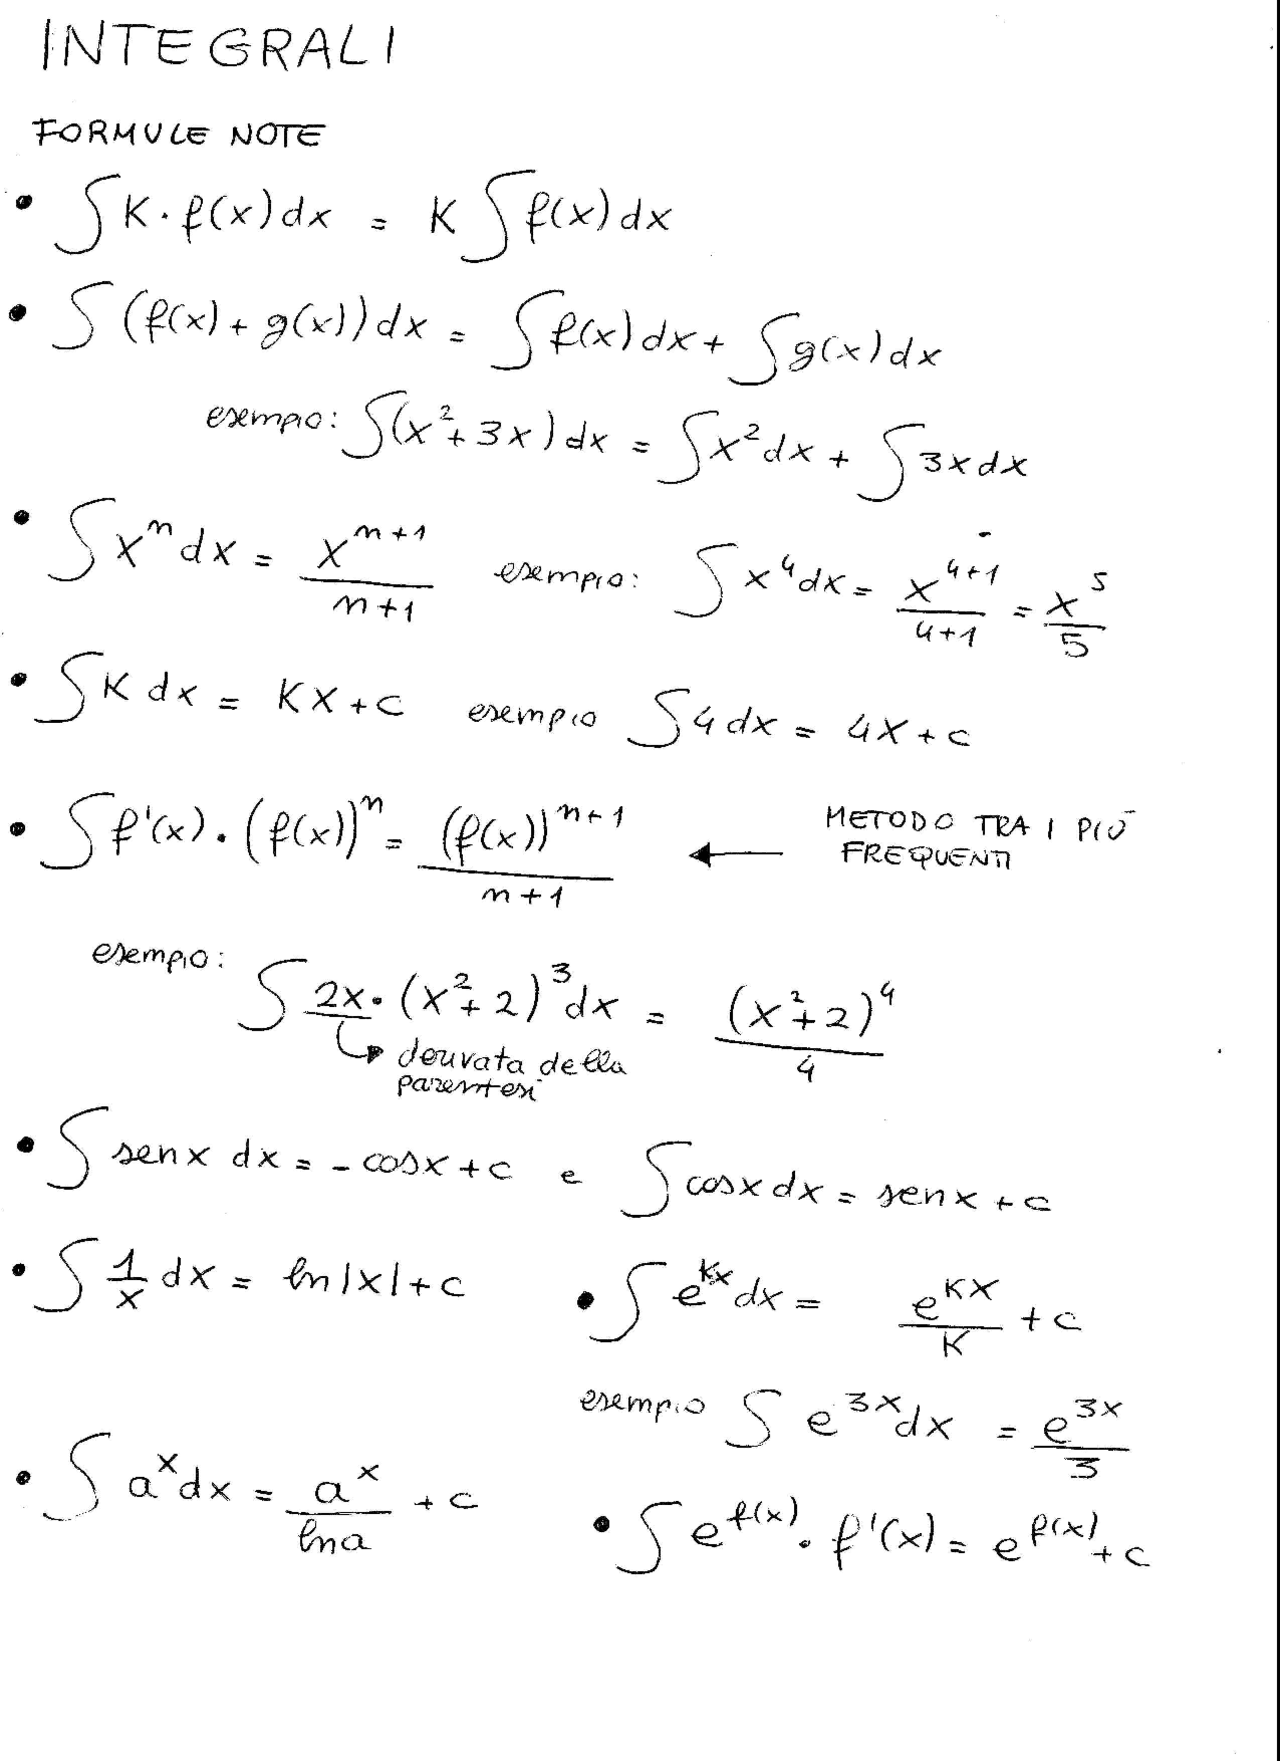 INTEGRALI
FORMULE NOTE
• ∫ K · f(x) dx = K ∫ f(x) dx
• ∫ (f(x) + g(x)) dx = ∫ f(x) dx + ∫ g(x) dx
esempio: ∫ (x² + 3x) dx = ∫ x² dx + ∫ 3x dx
• ∫ xⁿ dx = xⁿ⁺¹/(n+1) esempio: ∫ x⁴ dx = x⁴⁺¹/(4+1) = x⁵/5
• ∫ K dx = KX + c esempio ∫ 4 dx = 4X + c
• ∫ f'(x) · (f(x))ⁿ = (f(x))ⁿ⁺¹/(n+1) ← METODO TRA I PIÙ
FREQUENTI
esempio: ∫ 2x · (x² + 2)³ dx = (x² + 2)⁴/4
↳ derivata della
parentesi
• ∫ sen x dx = - cos x + c e ∫ cos x dx = sen x + c
• ∫ 1/x dx = ln |x| + c • ∫ e^(Kx) dx = e^(KX)/K + c
esempio ∫ e^(3x) dx = e^(3x)/3
• ∫ a^x dx = a^x/ln a + c • ∫ e^(f(x)) · f'(x) = e^(f(x)) + c